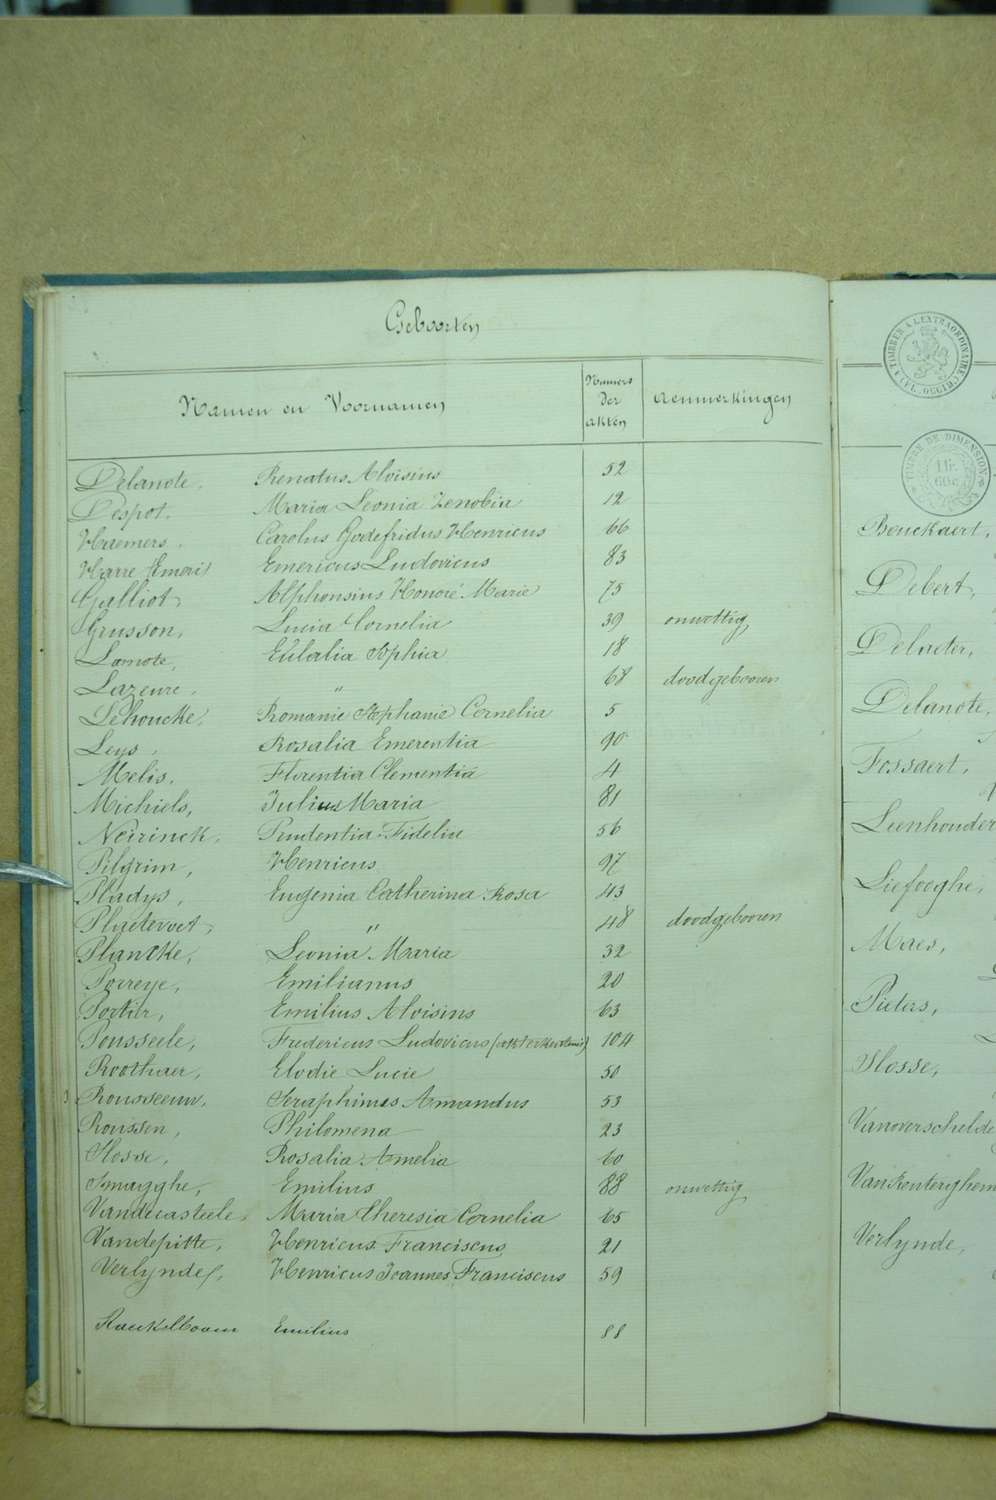 Geboorten
Namen en Voornamen Numers der akten Aenmerkingen
Delanote, Renatus Aloisius 52
Despot, Maria Leonia Zenobia 12
Haemers, Carolus Godefridus Henricus 66
Harre (Emeri) Emericus Ludovicus 83
Galliot, Alphonsius Honoré Marie 75
Grusson, Lucia Cornelia 39 onwettig
Lamote, Eulalia Sophia 18
Lazeure, " 68 doodgebooren
Lehoucke, Romanie Stephanie Cornelia 5
Leys, Rosalia Emerentia 90
Melis, Florentia Clementia 4
Michiels, Julius Maria 81
Neirinck, Prudentia Fidelia 56
Pilgrim, Henricus 97
Pladys, Eugenia Catherina Rosa 43
Plaetevoet, " 48 doodgebooren
Plancke, Leonia Maria 32
Porreye, Emilianus 20
Portier, Emilius Aloisius 63
Pousseele, Fredericus Ludovicus 104
Roothaer, Elodie Lucie 50
Rousseeuw, Seraphinus Amandus 53
Roussen, Philomena 23
Slosse, Rosalia Amelia 60
Smagghe, Emilius 88 onwettig
Vandecasteele, Maria Theresia Cornelia 65
Vandepitte, Henricus Franciscus 21
Verlynde, Henricus Joannes Franciscus 59
Raekelboom Emilius 88
TIMBRE A L'EXTRAORDINAIRE
(FL. OCCID.)
TIMBRE DE DIMENSION
1 fr. 60 c.
Beuckaert,
Debert,
Delaeter,
Delanote,
Fossaert,
Leenhouder
Liefooghe,
Maes,
Pieters,
Slosse,
Vanoverschelde
Vanrenterghem
Verlynde,